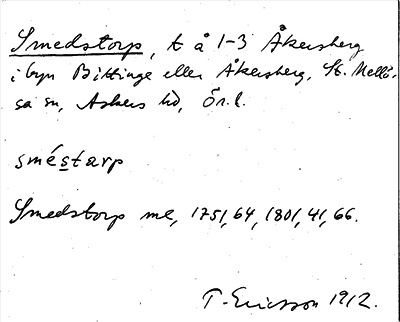 Smedstorp, t å 1-3 Åkersberg
i byn Bittinge eller Åkersberg, St. Mellö-
sa sn, Askers hd, Ör. l.
sméstarp
Smedstorp ml, 1751, 64, 1801, 41, 66.
T. Ericsson 1912.